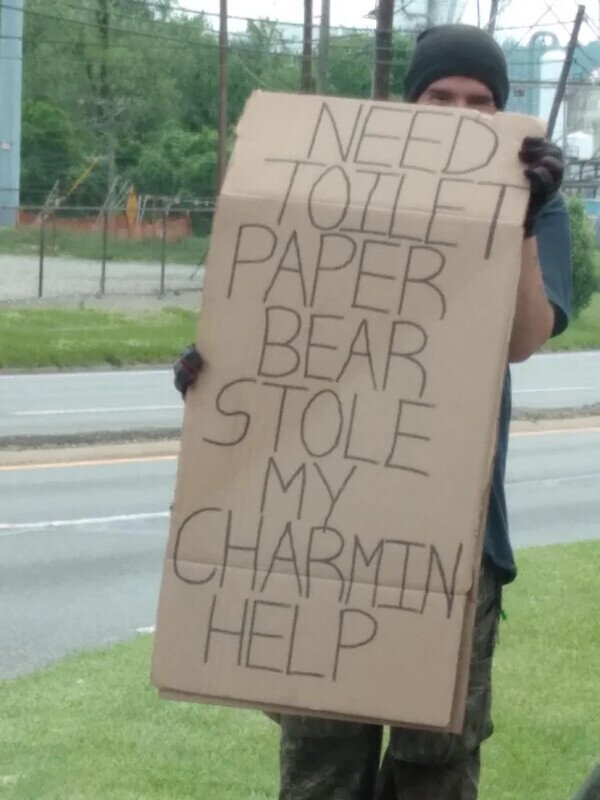 NEED
TOILET
PAPER
BEAR
STOLE
MY
CHARMIN
HELP